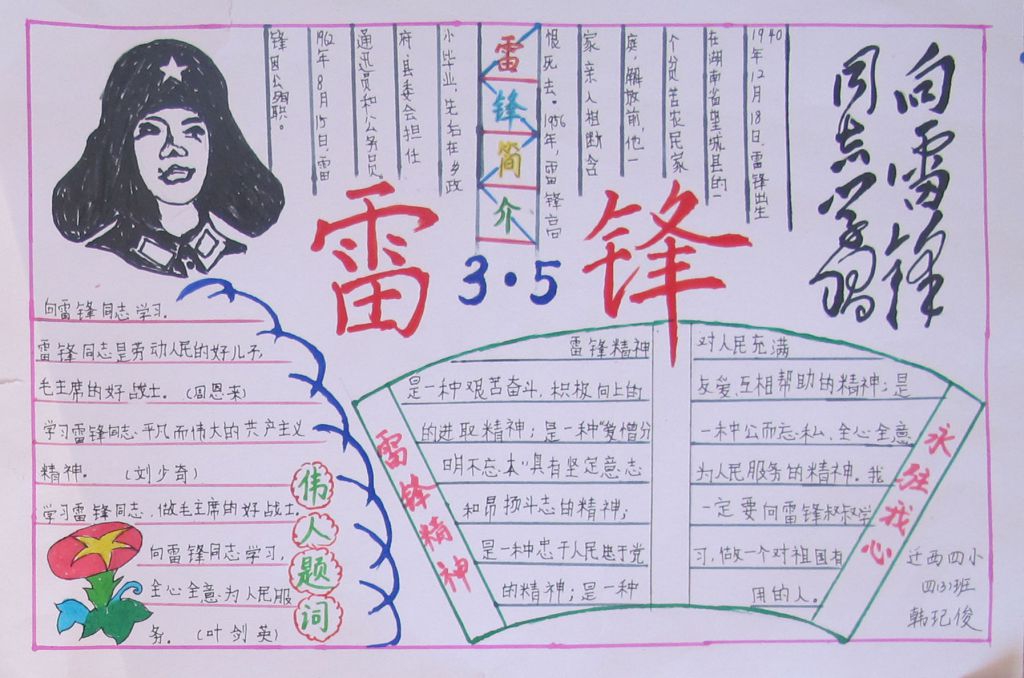 向雷锋
同志学习
雷锋简介
1940
年12月18日,雷锋出生
在湖南省望城县的一
个贫苦农民家
庭,解放前,他一
家亲人相断含
恨死去。1956年,雷锋高
小毕业,先后在乡政
府、县委会担任
通讯员和公务员。
1962年8月15日,雷
锋因公殉职。
雷锋
3·5
向雷锋同志学习。
雷锋同志是劳动人民的好儿子,
毛主席的好战士。(周恩来)
学习雷锋同志平凡而伟大的共产主义
精神。(刘少奇)
学习雷锋同志,做毛主席的好战士。
向雷锋同志学习,
全心全意为人民服
务。(叶剑英)
伟人题词
雷锋精神
雷锋精神
是一种艰苦奋斗,积极向上的
的进取精神;是一种“爱憎分
明不忘本”具有坚定意志
和昂扬斗志的精神;
是一种忠于人民忠于党
的精神;是一种
对人民充满
友爱,互相帮助的精神;是
一种公而忘私、全心全意
为人民服务的精神。我
一定要向雷锋叔叔学
习,做一个对祖国有
用的人。
永驻我心
迁西四小
四(3)班
韩玘俊